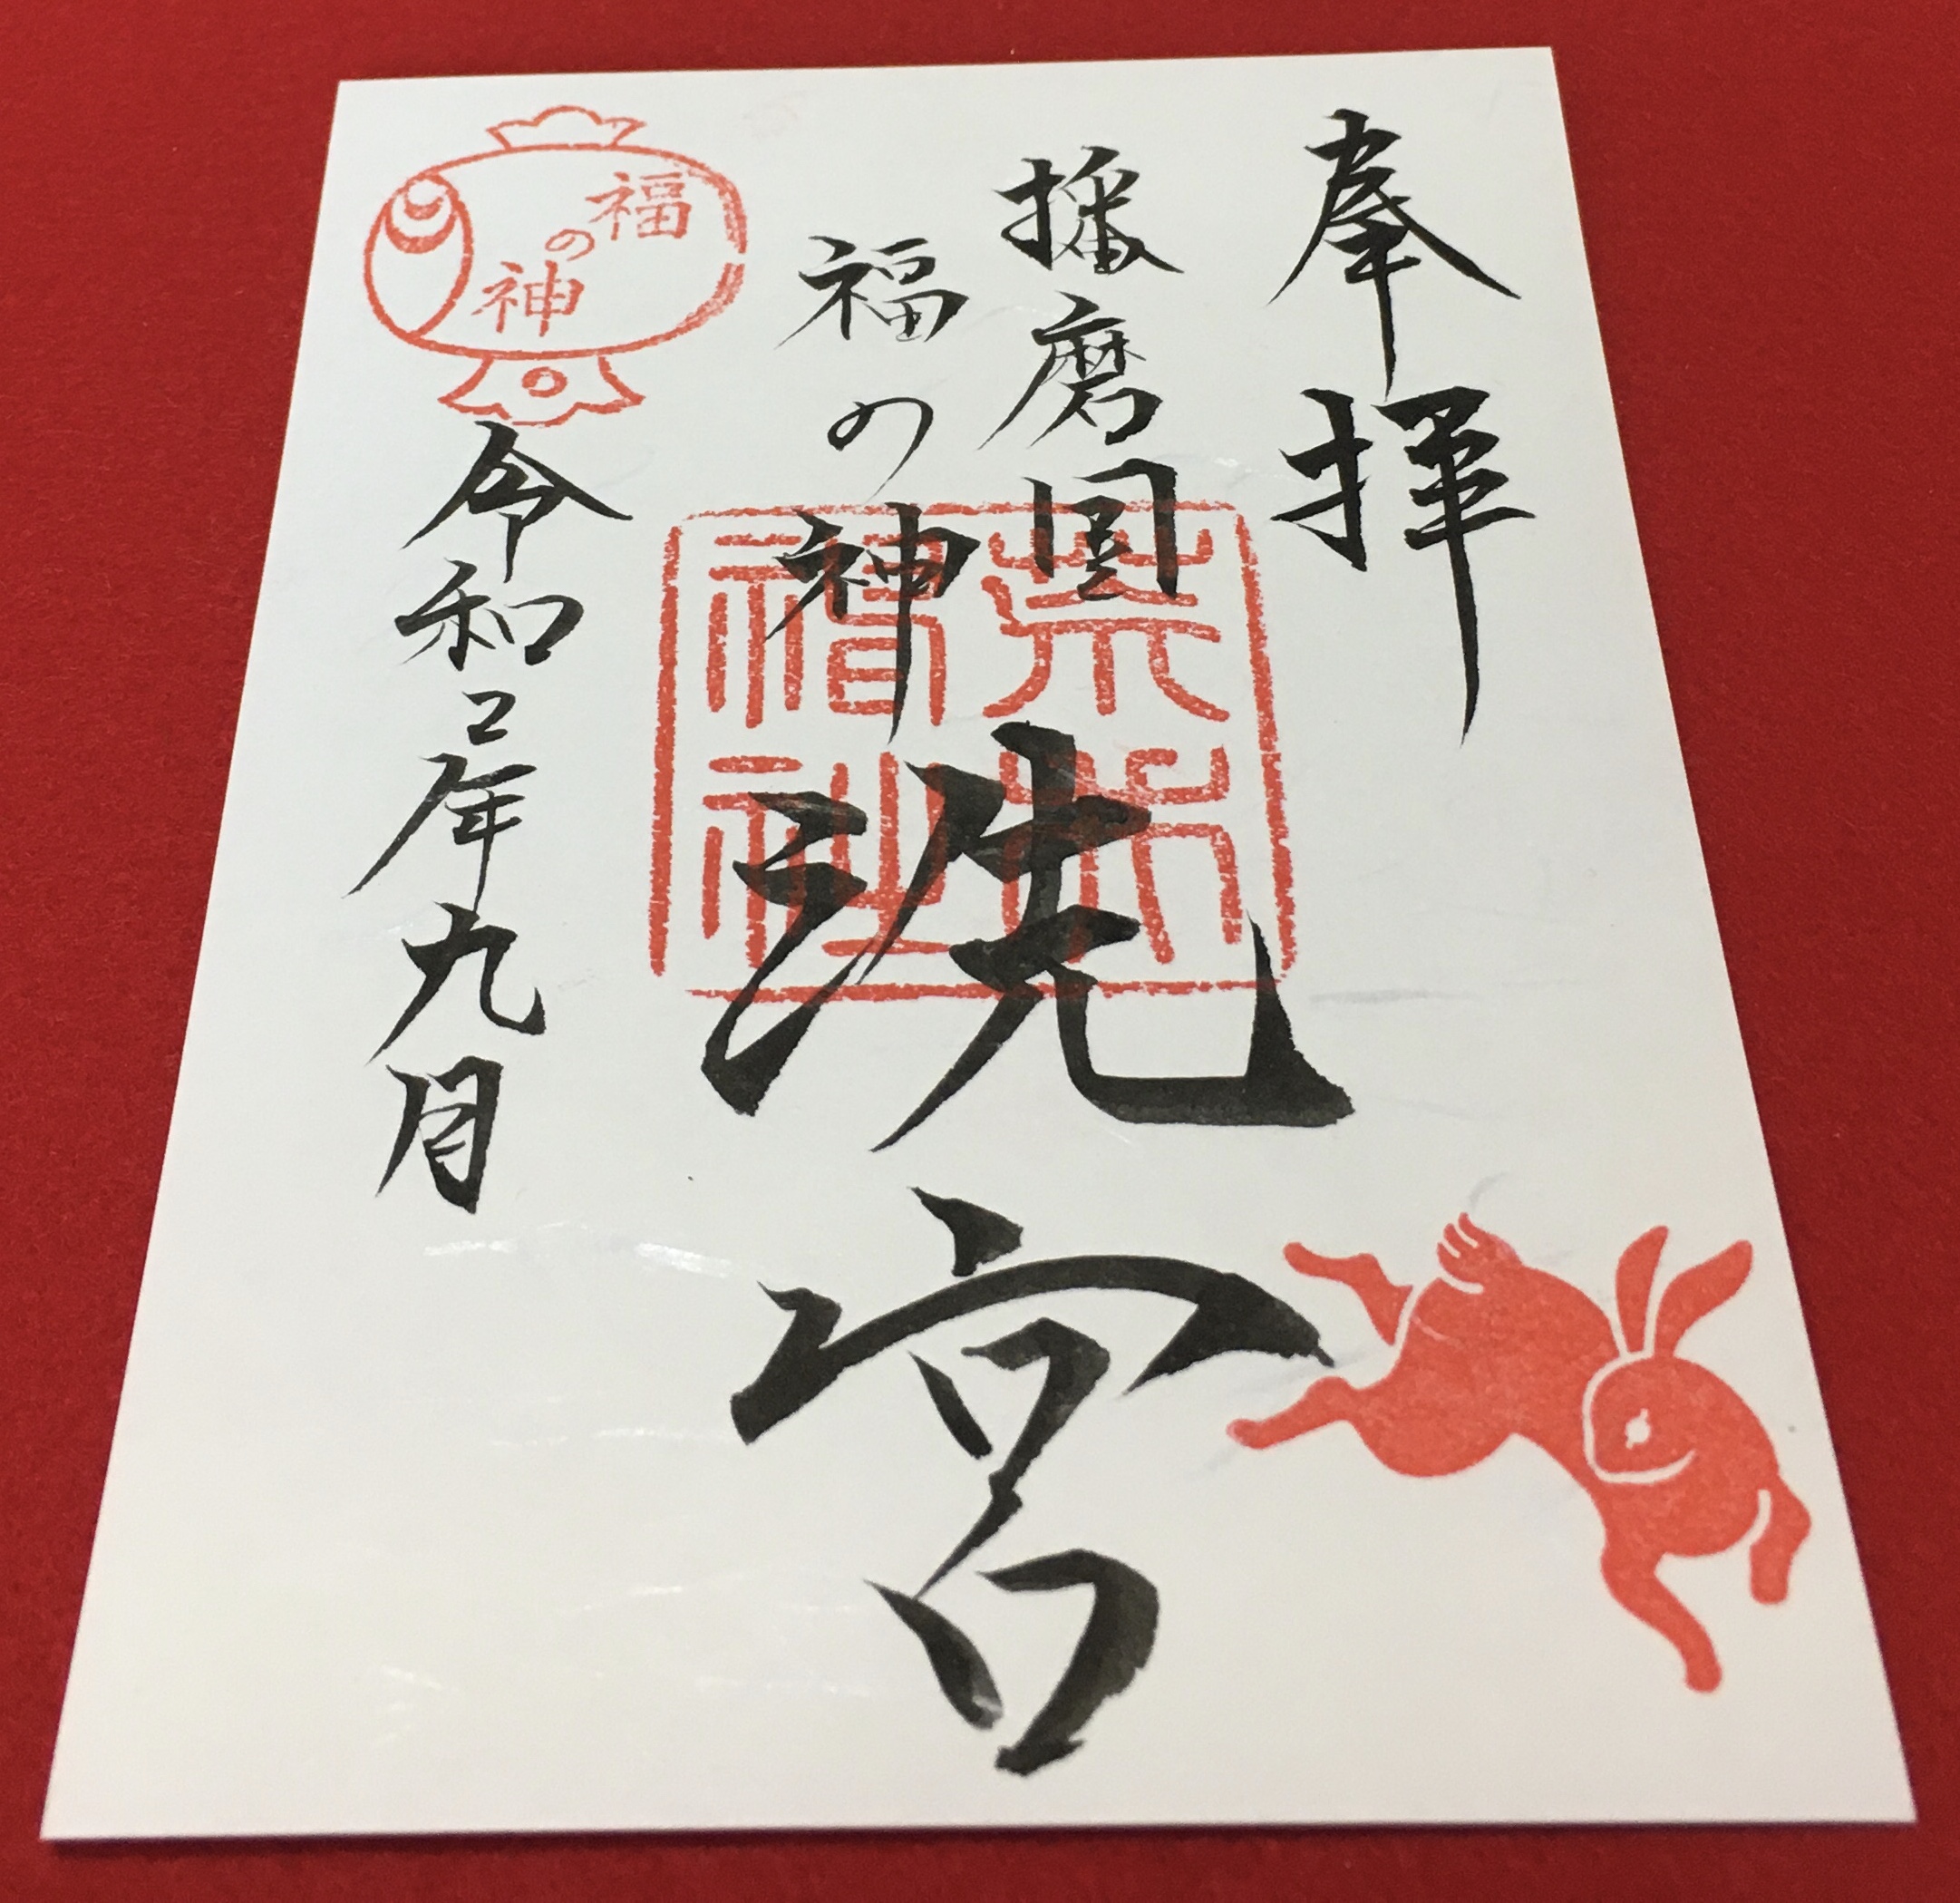 奉拝
播磨国
福の神
洗宮
令和二年九月
福の神
神社